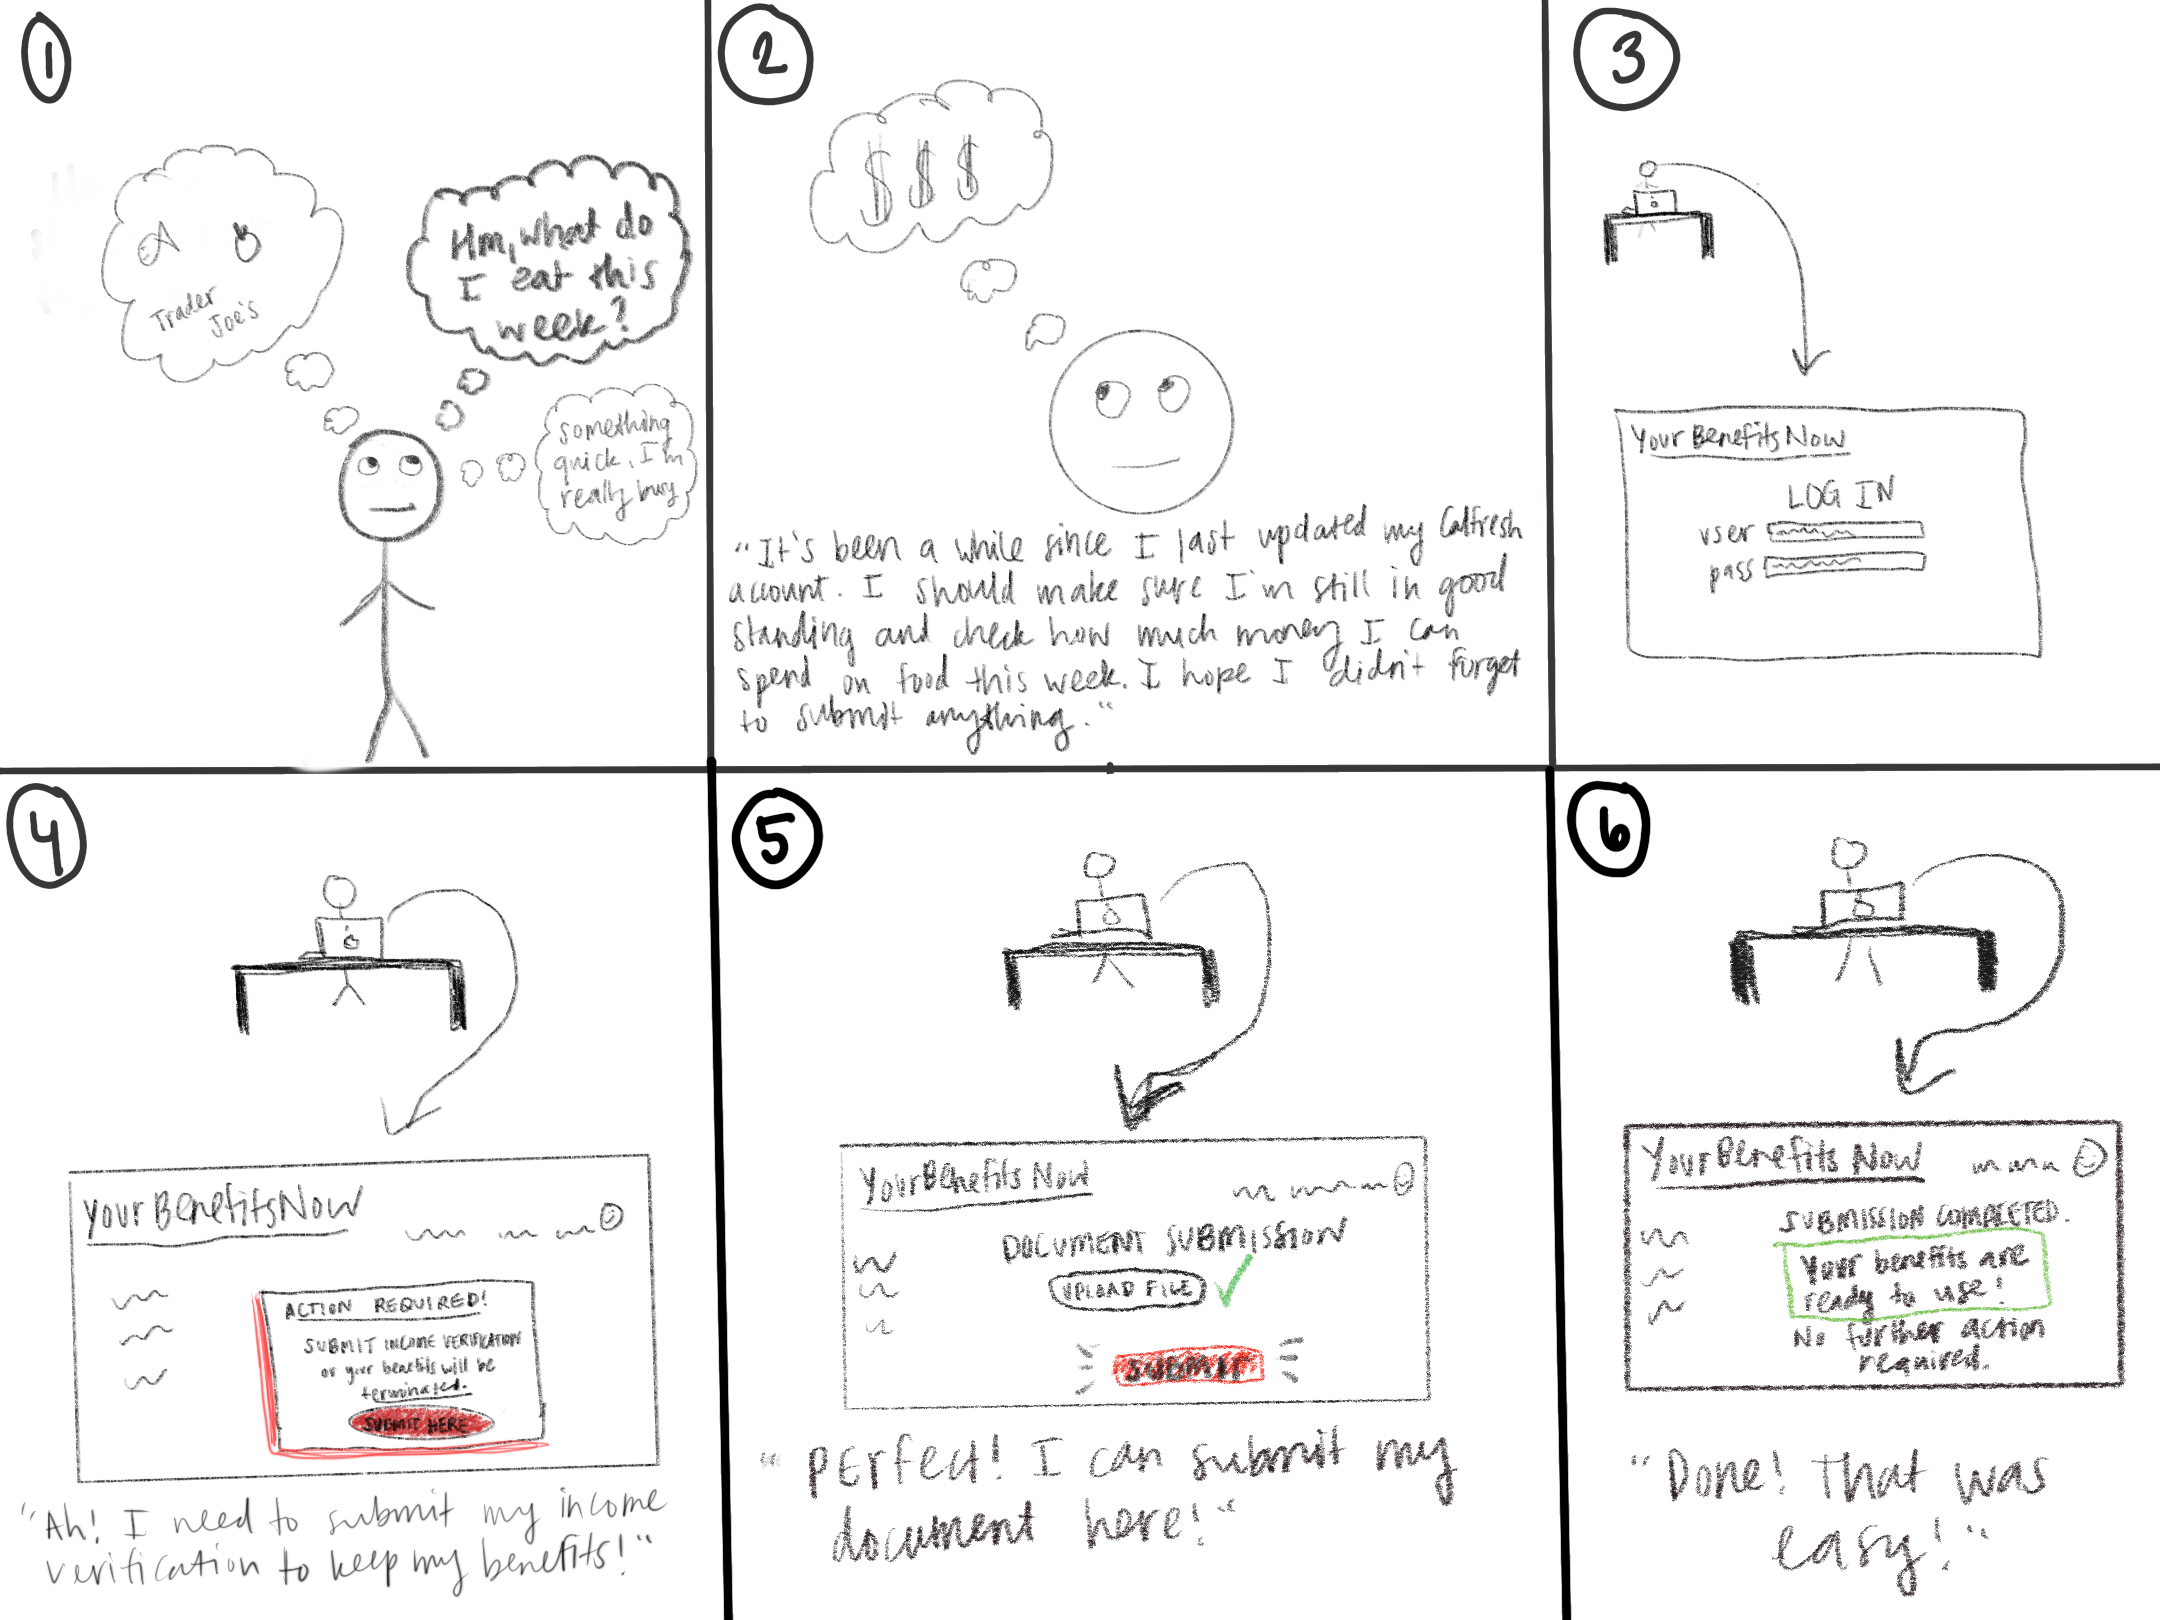 1
Trader
Joe's
Hm, what do
I eat this
week?
something
quick, I'm
really busy
2
$ $ $
"It's been a while since I last updated my Calfresh
account. I should make sure I'm still in good
standing and check how much money I can
spend on food this week. I hope I didn't forget
to submit anything."
3
YourBenefitsNow
LOG IN
user
pass
4
YourBenefitsNow
ACTION REQUIRED!
SUBMIT INCOME VERIFICATION
or your benefits will be
terminated.
SUBMIT HERE
"Ah! I need to submit my income
verification to keep my benefits!"
5
YourBenefits Now
DOCUMENT SUBMISSION
UPLOAD FILE
SUBMIT
"Perfect! I can submit my
document here!"
6
YourBenefits Now
SUBMISSION COMPLETED.
Your benefits are
ready to use!
No further action
required.
"Done! That was
easy!"